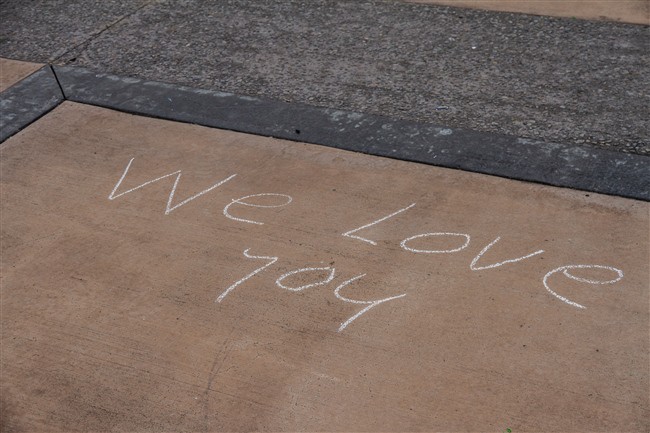 We Love
you